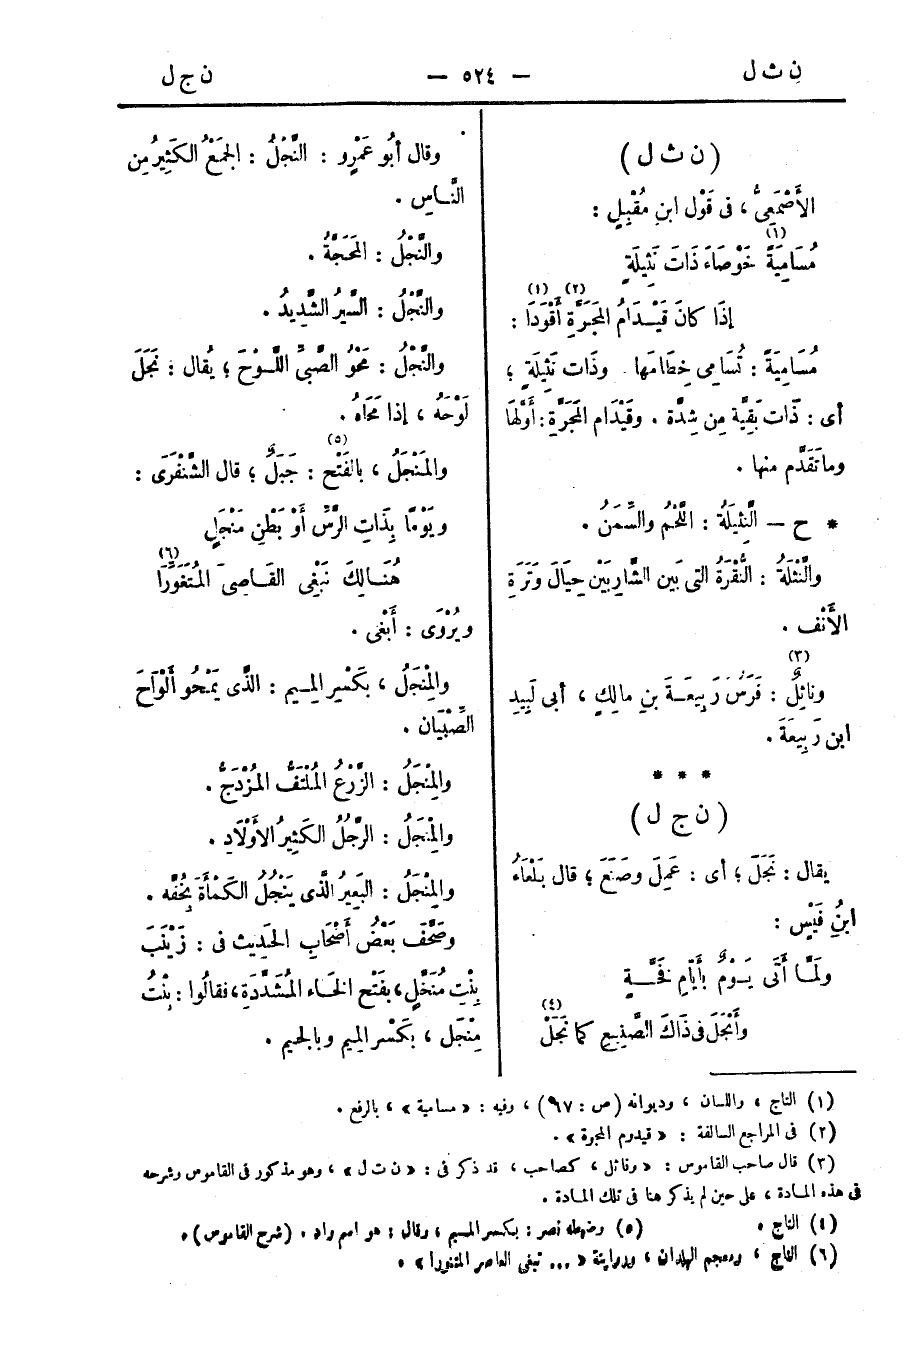 ن ث ل
— ٥٢٤ —
ن ج ل
(ن ث ل)
الأَصْمَعِىُّ ، فى قَوْل ابنِ مُقْبِلٍ :
مُسَامِيَةً خَوْصَاءَ ذَاتَ نَثِيلَةٍ (١)
إذَا كانَ قَيْـدَامُ المَجَرَّةِ أَقْوَدَا (٢) (١) :
مُسَامِيَةً : تُسَامِى خِطَامَها . وذَات نَثِيلَةٍ ؛
أى : ذَات بَقِيَّة مِن شِدَّة . وقَيْدَام المَجَرَّةِ : أَوّلها
وماتَقَدَّم منها .
* ح — النَّثِيلَةُ : اللَّحْمُ والسِّمَنُ .
والنَّثْلَةُ : النُّقْرَةُ التى بَين الشَّارِبَيْن حِيَالَ وَتَرَةِ
الأَنْف .
ونَاثِلٌ (٣) : فَرَسُ رَبِيعَـةَ بنِ مالِكٍ ، أبى لَبِيدِ
ابن رَبِيعَةَ .
* * *
(ن ج ل)
يقال : نَجَلَ ؛ أى : عَمِلَ وصَنَعَ ؛ قال بَلْعَاءُ
ابنُ قَيْسٍ :
ولَمَّـا أَتَى يَـوْمٌ بأيّامِ فَخَّـةٍ
وأَنْجَلَ فى ذَاكَ الصَّنِيعِ كما نَجَلْ (٤)
وقال أبُو عَمْرٍو : النَّجْلُ : الجَمْعُ الكَثِيرُ مِن
النَّـاسِ .
والنَّجْلُ : المَحَجَّةُ .
والنَّجْلُ : السَّيْرُ الشَّدِيدُ .
والنَّجْلُ : مَحْوُ الصَّبِىِّ اللَّـوْحَ ؛ يُقال : نَجَلَ
لَوْحَهُ ، إذا مَحَاهُ .
والمَنْجَلُ ، بالفَتْح : جَبَلٌ (٥) ؛ قال الشَّنْفَرَى :
ويَوْمًا بِذَاتِ الرَّسِّ أَوْ بَطْنِ مَنْجَلٍ
هُنَـالِكَ نَبْغِى القَـاصِىَ المُتَغَوِّرَا (٦)
ويُرْوَى : أَبْغِى .
والمِنْجَلُ ، بكَسْر المِـيم : الَّذى يَمْحُو أَلْوَاحَ
الصِّبْيَان .
والمِنْجَلُ : الزَّرْعُ المُلْتَفُّ المُزْدَجُّ .
والمِنْجَلُ : الرَّجُلُ الكَثِيرُ الأَوْلَادِ .
والمِنْجَلُ : البَعِيرُ الَّذى يَنْجُلُ الكَمْأَةَ بِخُفِّه .
وصَحَّفَ بَعْضُ أَصْحَابِ الحَدِيث فى : زَيْنَبَ
بِنْتِ مُنَخَّلٍ ، بفَتْح الخَـاء المُشَدَّدَةِ ، فقالُوا : بِنْتُ
مِنْجَل ، بكَسْر المِيم وبالجِيم .
(١) التاج ، واللسان ، وديوانه (ص : ٩٧) ، وفيه : « مسامية » ، بالرفع .
(٢) فى المراجع السالفة : « قيدوم المجرة » .
(٣) قال صاحب القاموس : « وناثل ، كصاحب ، قد ذكر فى : « ن ت ل » ، وهو مذكور فى القاموس وشرحه
فى هذه المـادة ، على حين لم يذكر هنا فى تلك المـادة .
(٤) التاج . (٥) وضبطه نصر : بكسر الميـم ، وقال : هو اسم واد . (شرح القاموس) .
(٦) التاج ، ومعجم البلدان ، وروايته « ... تبغى العاصر المتغورا » .